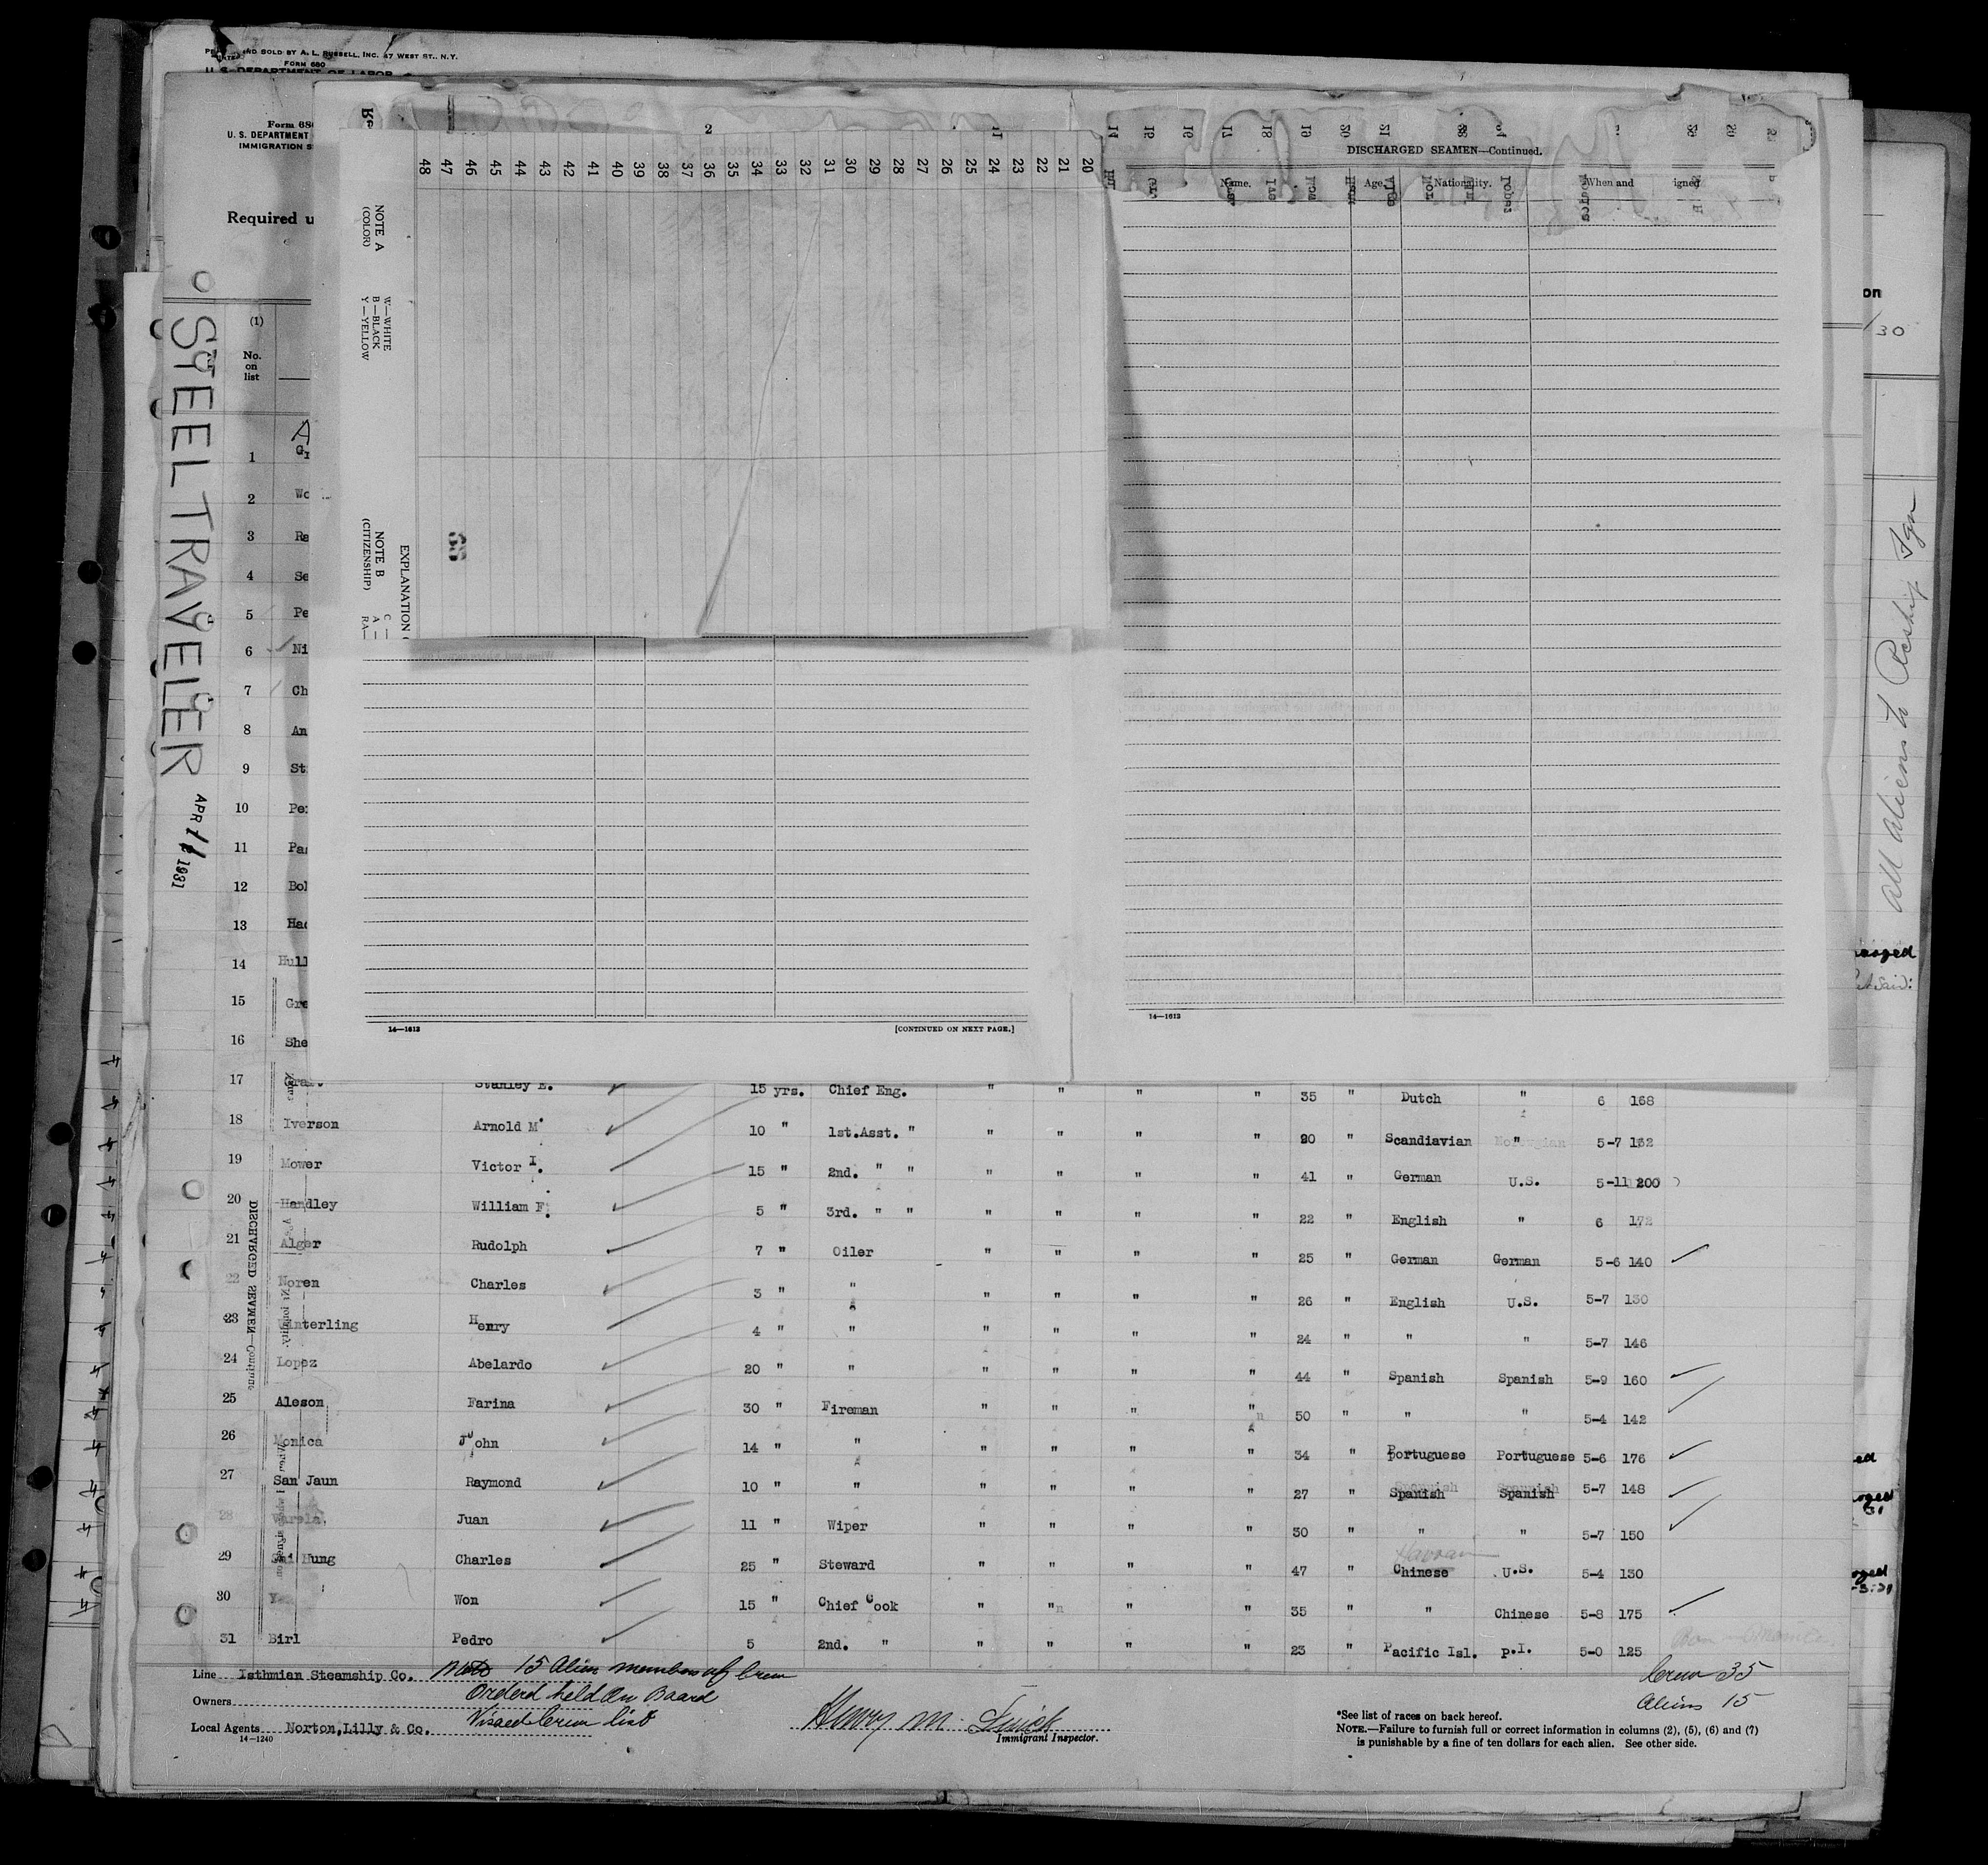 PRINTED AND SOLD BY A. L. RUSSELL, INC. 47 WEST ST., N.Y.
FORM 680
U. S. DEPARTMENT OF LABOR
Form 680
U. S. DEPARTMENT
IMMIGRATION S
Required u
STEEL TRAVELER
APR 11 1931
(1)
No.
on
list
1 Gr
2 Wo
3 Ra
4 Se
5 Pe
6 Ni
7 Ch
8 An
9 St
10 Pe
11 Pa
12 Bol
13 Had
14 Hull
15 Gre
16 She
2
48 47 46 45 44 43 42 41 40 39 38 37 36 35 34 33 32 31 30 29 28 27 26 25 24 23 22 21 20
NOTE A
(COLOR)
W—WHITE
B—BLACK
Y—YELLOW
NOTE B
(CITIZENSHIP)
C —
A —
RA—
EXPLANATION
35
DISCHARGED SEAMEN—Continued.
Name. Age. Nationality. When and igned
14—1613
[CONTINUED ON NEXT PAGE.]
14—1613
on
/30
All Aliens to Reship Fgn
17 Stanley E. 15 yrs. Chief Eng. " " " " 35 " Dutch " 6 168
18 Iverson Arnold M. 10 " 1st.Asst. " " " " " 20 " Scandiavian " 5-7 132
19 Mower Victor I. 15 " 2nd. " " " " " " 41 " German U.S. 5-11 200
20 Handley William F. 5 " 3rd. " " " " " " 22 " English " 6 172
21 Alger Rudolph 7 " Oiler " " " " 25 " German German 5-6 140
22 Noren Charles 3 " " " " " " 26 " English U.S. 5-7 130
23 Winterling Henry 4 " " " " " " 24 " " " 5-7 146
24 Lopez Abelardo 20 " " " " " " 44 " Spanish Spanish 5-9 160
25 Aleson Farina 30 " Fireman " " " " 50 " " " 5-4 142
26 Monica John 14 " " " " " " 34 " Portuguese Portuguese 5-6 176
27 San Jaun Raymond 10 " " " " " " 27 " Spanish Spanish 5-7 148
28 Varela Juan 11 " Wiper " " " " 30 " " " 5-7 150
29 Hung Charles 25 " Steward " " " " 47 " Chinese U.S. 5-4 130
30 Won 15 " Chief Cook " " " " 35 " " Chinese 5-8 175
31 Birl Pedro 5 2nd. " " " " " 23 " Pacific Isl. P.I. 5-0 125
DISCHARGED SEAMEN—Continued
Line Isthmian Steamship Co.
Note 15 Alien members of Crew
Orderd held On Board
Visaed Crew list
Owners
Local Agents Norton,Lilly & Co.
14—1240
Immigrant Inspector.
Crew 35
Aliens 15
*See list of races on back hereof.
NOTE.—Failure to furnish full or correct information in columns (2), (5), (6) and (7)
is punishable by a fine of ten dollars for each alien. See other side.